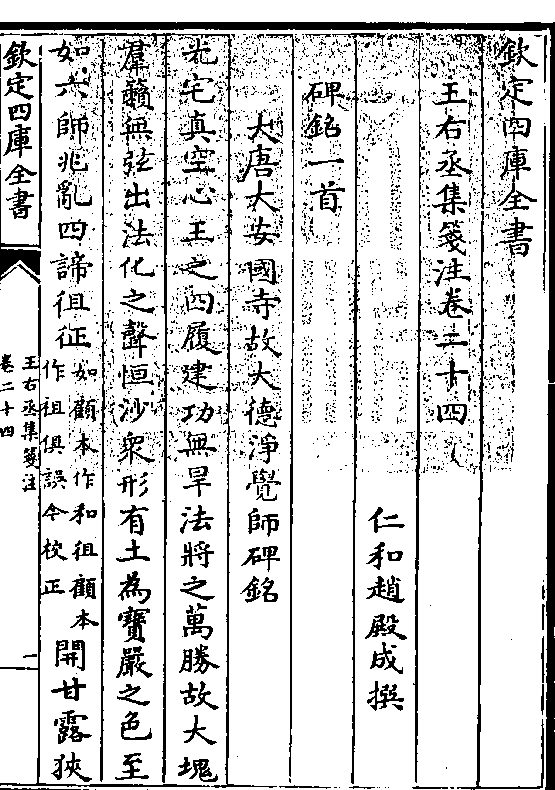 欽定四庫全書
王右丞集箋注卷二十四
仁和趙殿成撰
碑銘一首
大唐大安國寺故大德淨覺師碑銘
光宅真空心王之四履建功無旱法將之萬勝故大塊
羣籟無弦出法化之聲恒沙衆形有土為寶嚴之色至
如六師兆亂四諦徂征
如顧本作和徂顧本
作祖俱誤今校正
開甘露狹
欽定四庫全書
王右丞集箋注
卷二十四
一